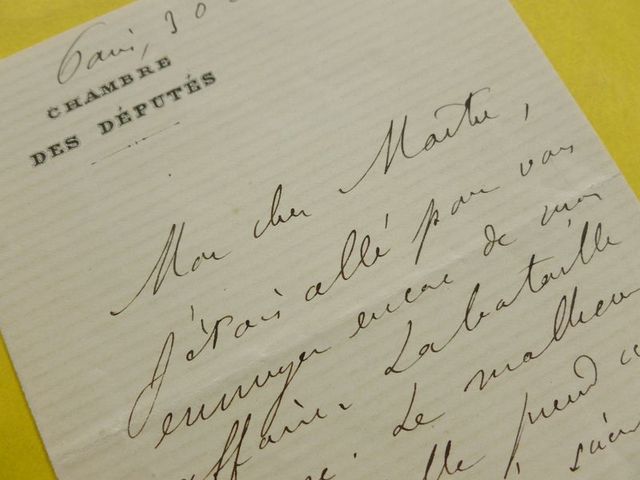 Paris, 30
CHAMBRE
DES DÉPUTÉS
Mon cher Maître,
J'étais allé pour vous
ennuyer encore de mon
affaire Labataille
Le malheur
elle prend